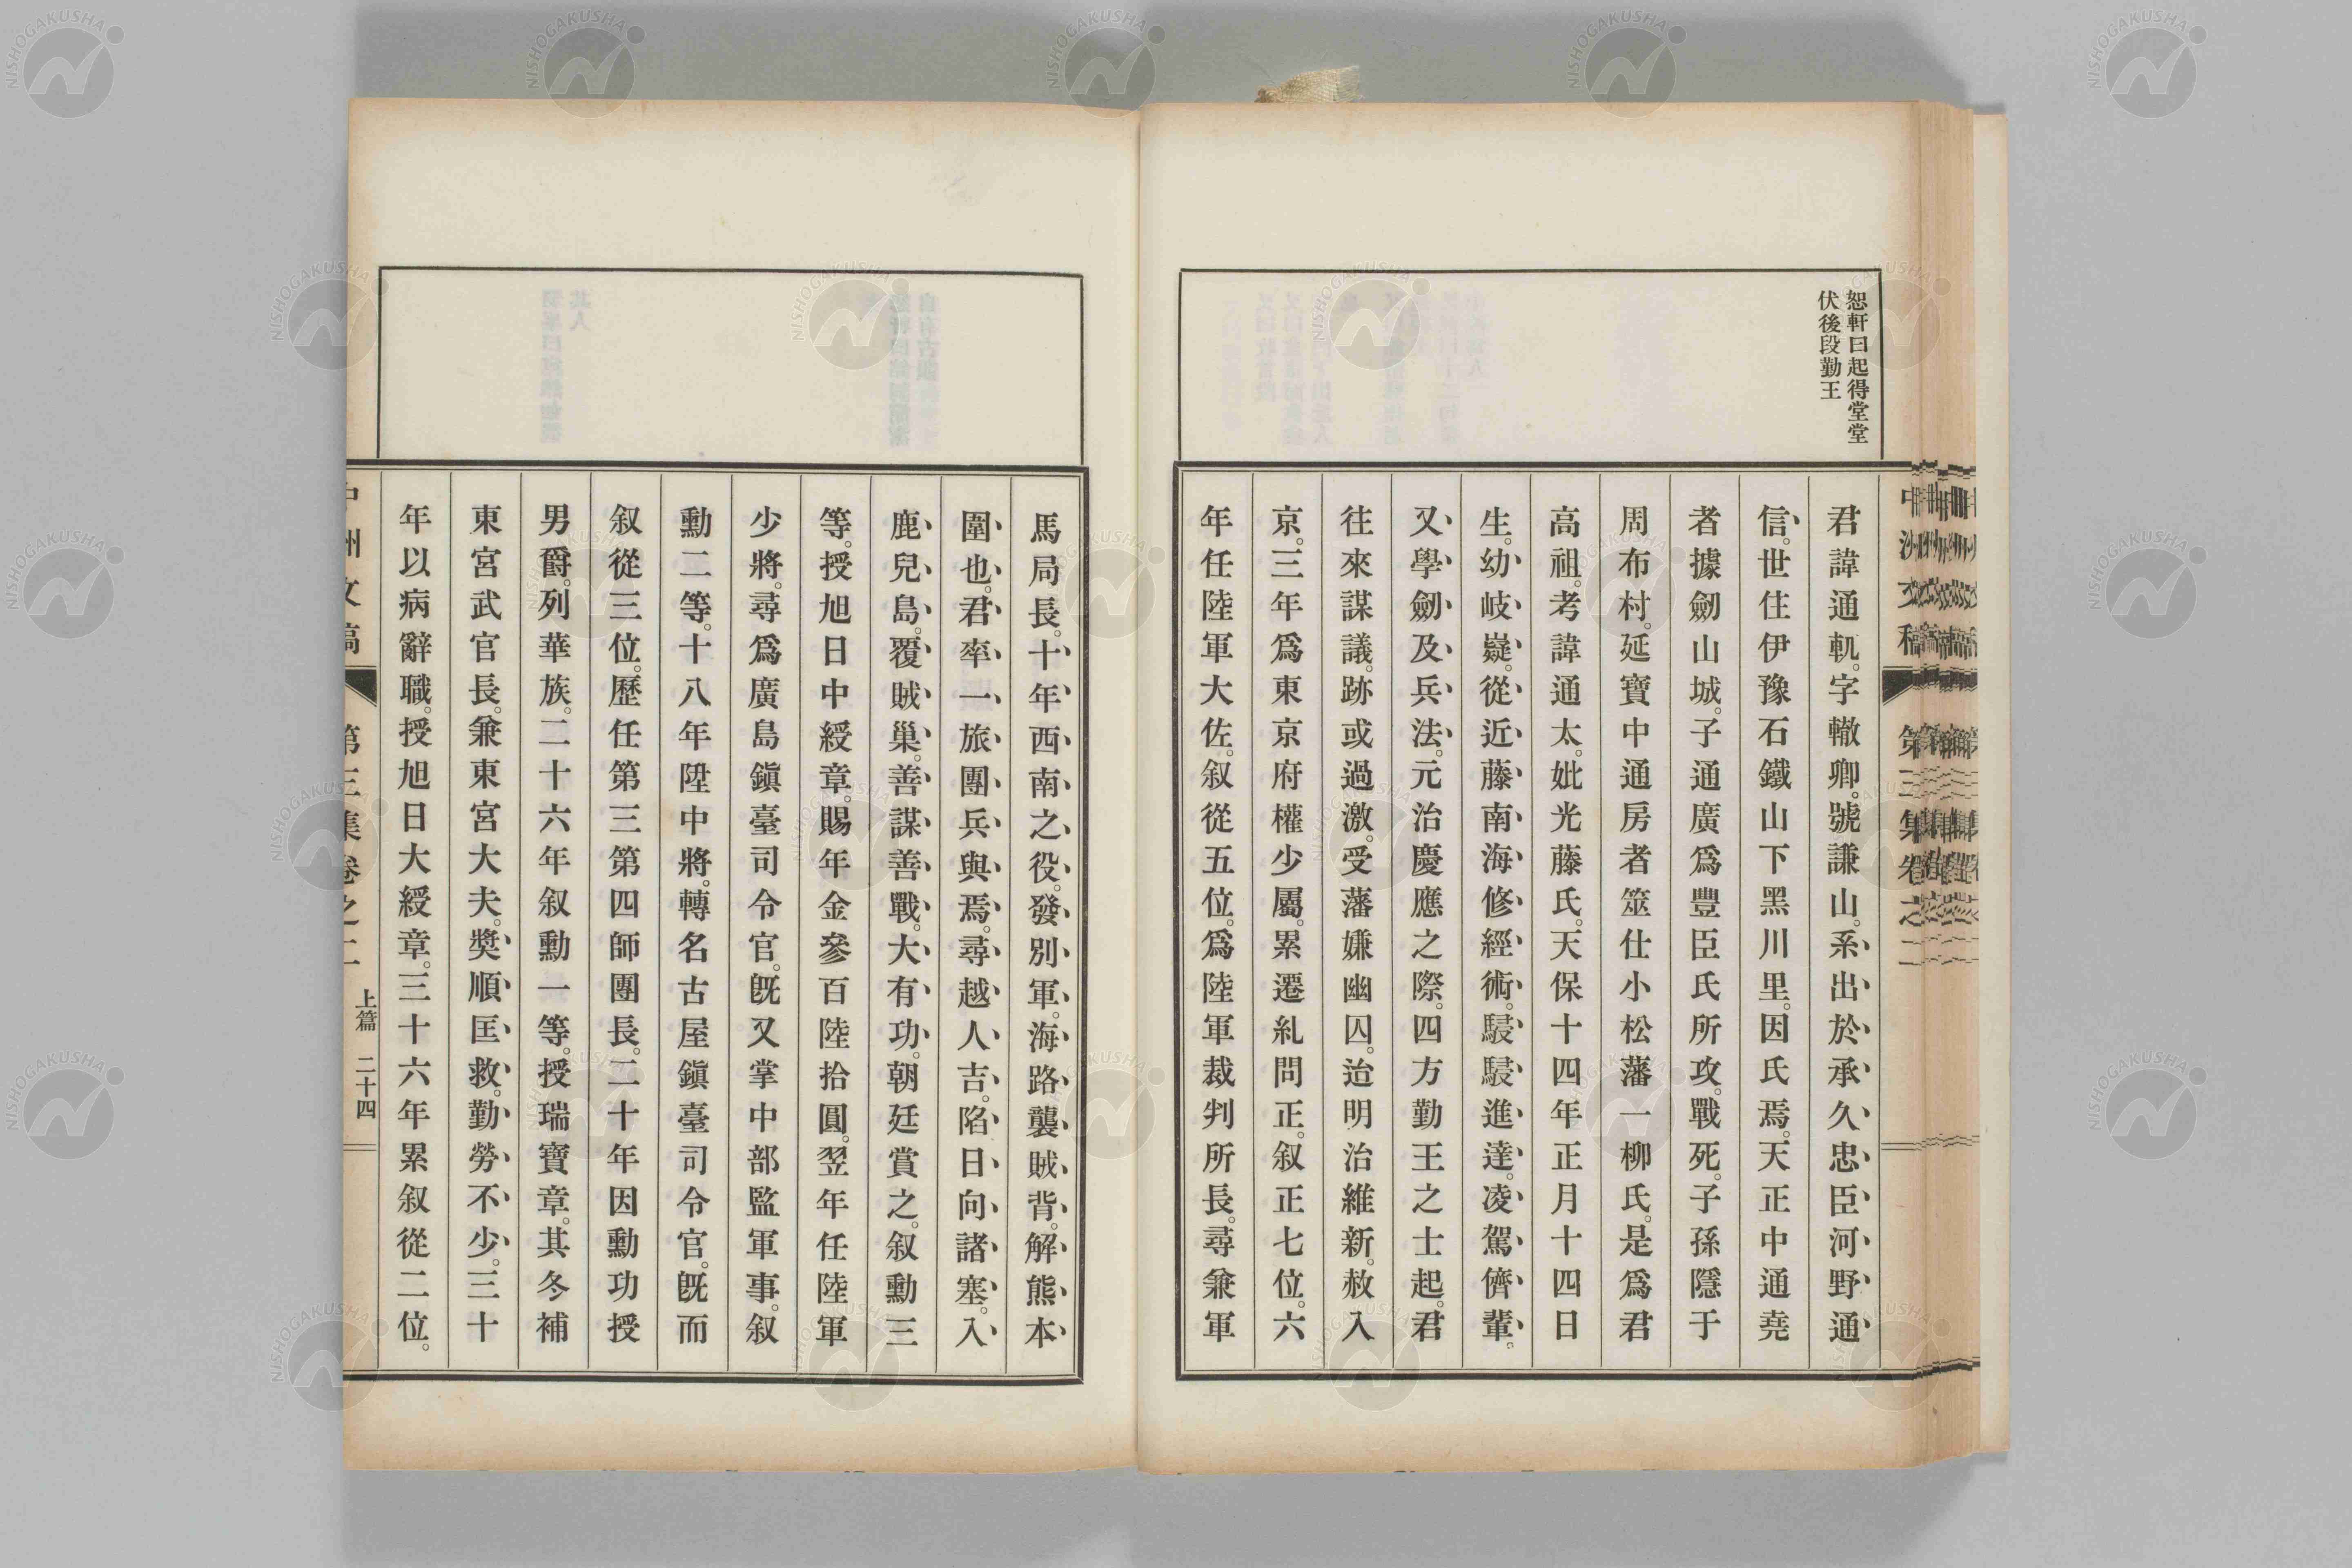 恕軒曰起得堂堂
伏後段勤王
君諱通軌。字轍卿。號謙山。系出於承久忠臣河野通
信。世住伊豫石鐵山下黑川里。因氏焉。天正中通堯
者據劒山城。子通廣爲豐臣氏所攻。戰死。子孫隱于
周布村。延寶中通房者筮仕小松藩一柳氏。是爲君
高祖。考諱通太。妣光藤氏。天保十四年正月十四日
生。幼岐嶷。從近藤南海修經術。駸駸進達。凌駕儕輩。
又學劒及兵法。元治慶應之際。四方勤王之士起。君
往來謀議。跡或過激。受藩嫌幽囚。迨明治維新。赦入
京。三年爲東京府權少屬。累遷糺問正。叙正七位。六
年任陸軍大佐。叙從五位。爲陸軍裁判所長。尋兼軍
馬局長。十年西南之役。發別軍。海路襲賊背。解熊本
圍也。君率一旅團兵與焉。尋越人吉。陷日向諸塞。入
鹿兒島。覆賊巢。善謀善戰。大有功。朝廷賞之。叙勳三
等。授旭日中綬章。賜年金參百陸拾圓。翌年任陸軍
少將。尋爲廣島鎭臺司令官。既又掌中部監軍事。叙
勳二等。十八年陞中將。轉名古屋鎭臺司令官。既而
叙從三位。歷任第三第四師團長。二十年因勳功授
男爵。列華族。二十六年叙勳一等。授瑞寶章。其冬補
東宮武官長。兼東宮大夫。奬順匡救。勤勞不少。三十
年以病辭職。授旭日大綬章。三十六年累叙從二位。
中洲文稿 第三集卷之二 上篇 二十四
NISHOGAKUSHA